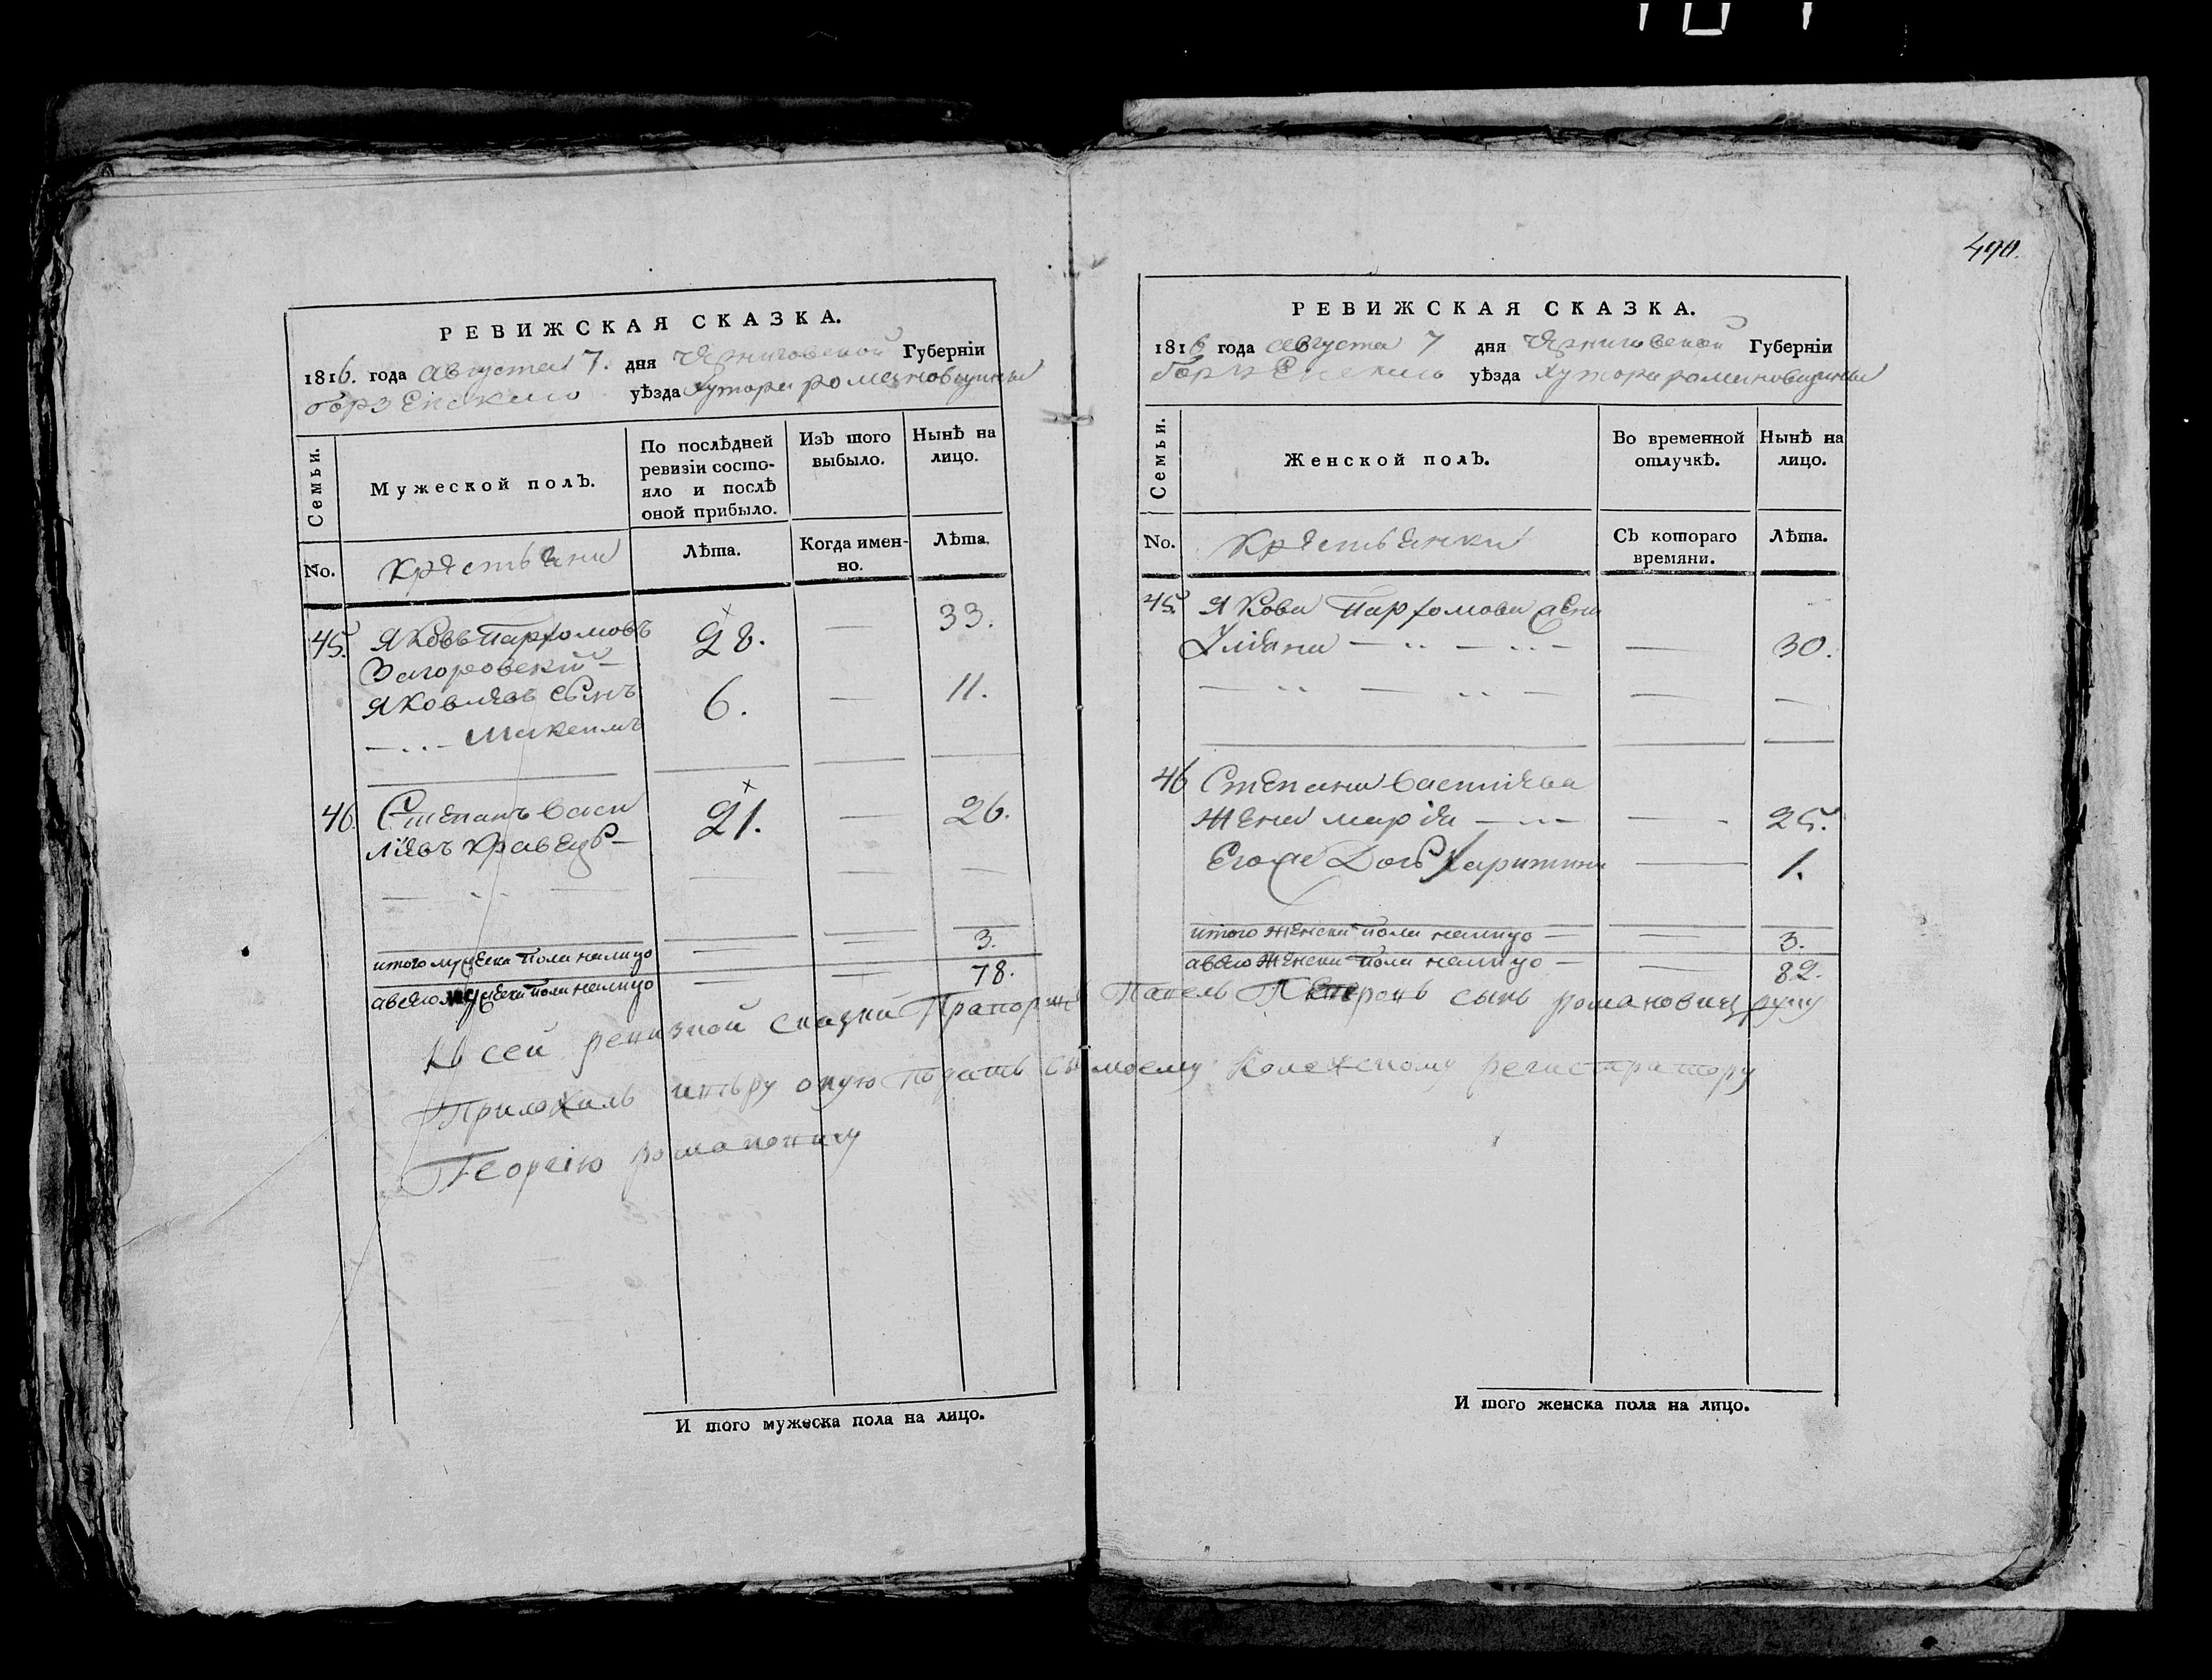 490.
РЕВИЖСКАЯ СКАЗКА.
1816. года августа 7. дня Черниговской Губерніи
борзенского уѣзда Хутора романовщины
Семьи.
Мужеской полъ.
По послѣдней ревизіи состояло и послѣ оной прибыло.
Изъ того выбыло.
Нынѣ на лицо.
No.
Крестьяни
Лѣта.
Когда именно.
Лѣта.
45. Яковъ Парфомовъ 28. — 33.
Загоровскій —
Яковлевъ сынъ 6. — 11.
— .. — 
46. Степанъ Васи 21. — 26.
лиевъ Кравецъ —
итого мужеска пола налицо — — 3.
авсего мужеска пола налицо — — 78.
РЕВИЖСКАЯ СКАЗКА.
1816 года августа 7 дня Черниговской Губерніи
борзенского уѣзда Хутора романовщины
Семьи.
Женской полъ.
Во временной отлучкѣ.
Нынѣ на лицо.
No.
Крестьянки
Съ котораго времяни.
Лѣта.
45. Якова Парфомова жена
Уліана — .. — .. — — 30.
46 Степана Василиева
жена марія — .. — — 25.
Егоже Дочь Харитина — 1.
итого женска пола налицо — — 3.
авсего женска пола налицо — — 82.
Къ сей ревизкой сказки Прапорщикъ Павелъ Петровъ сынъ романович руку
Приложилъ подать сыну моему Колежскому регистратору
Георгію романовичу
И того мужеска пола на лицо.
И того женска пола на лицо.